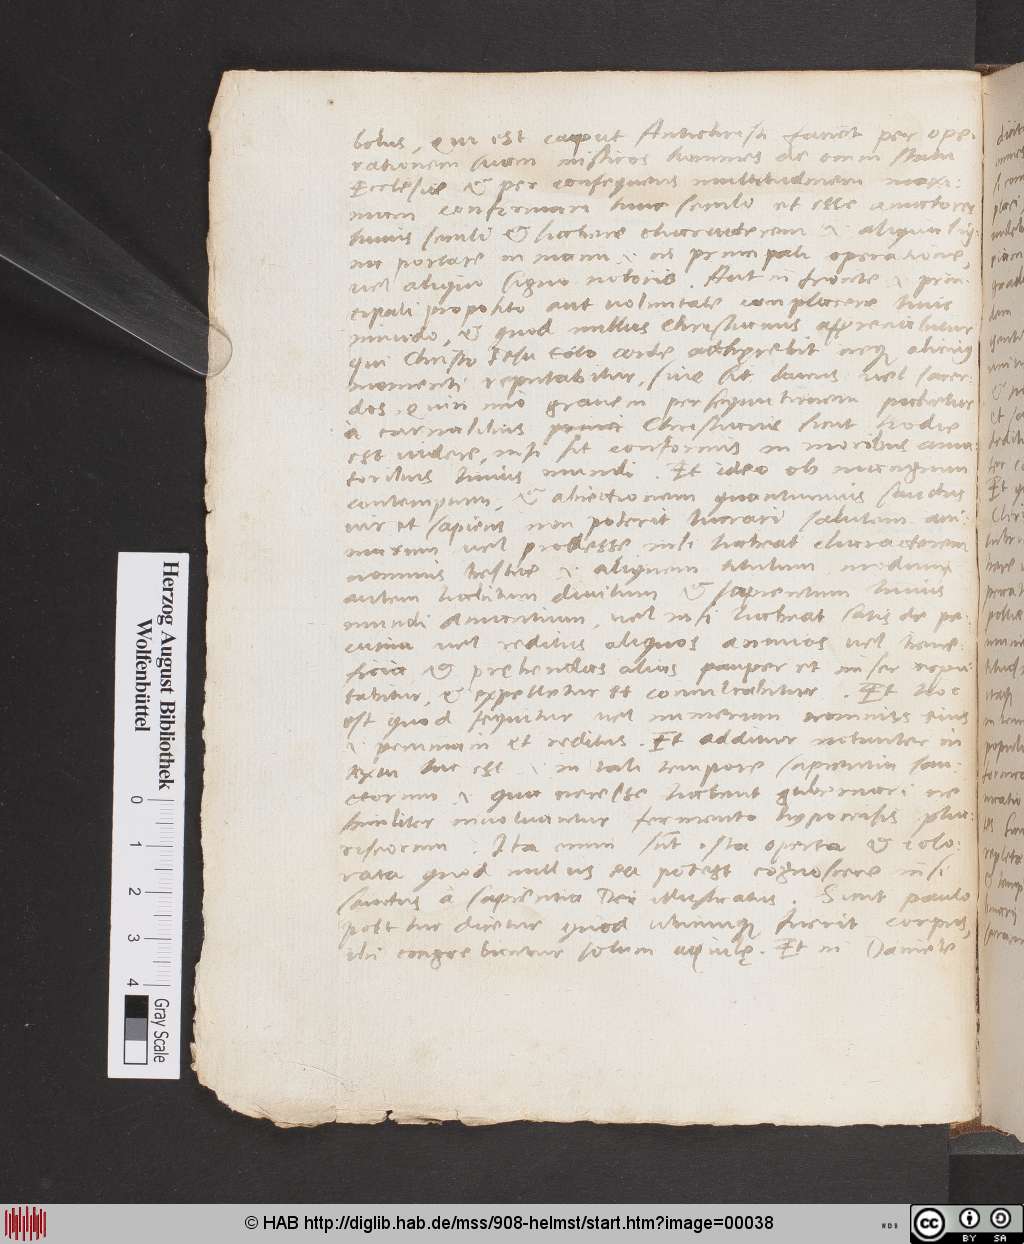 bolus, qui est caput Antichristi faciet per ope-
rationem suam misticos homines de omni statu
Ecclesie & per consequens multitudinem maxi-
mam conformari huic seculo et esse amatores
huius seculi & habere characterem .i. aliquid sig-
ni portare in manu .i. in principali operatione,
vel aliquo signo notorio. Aut in fronte .i. prin-
cipali proposito aut voluntate complacere huic
mundo, & quod nullus Christianus appreciabitur
qui Christo Jesu toto corde adhęrebit neq; alicuius
momenti reputabitur, sive sit laicus vel sacer-
dos, quin imo gravem persequutionem patietur
à carnalibus Christianis sicut hodie
est videre, nisi sit conformis in moribus ama-
toribus huius mundi. Et ideo ob magnum
contemptum, & abiectionem quantumvis sanctus
vir et sapiens non poterit lucrari salutem ani-
marum vel prodesse nisi habeat characterem
nominis bestie .i. aliquem titulum
autem habitum divitum & sapientum huius
mundi amantium, vel nisi habeat satis de pe-
cunia vel reditus aliquos annuos vel bene-
ficia & prębendas alias pauper et miser repu-
tabitur, & expelletur et conculcabitur. Et hoc
est quod sequitur vel numerum nominis eius
.i. pecuniam et reditus. Et additur notanter in
textu hic est .i. in tali tempore sapientia sanc-
ctorum .i. qua necesse habent gubernari ne
similiter involvantur fermento hypocrisis pha-
riseorum. Ita enim sunt ista operta & colo-
rata quod nullus ea potest cognoscere nisi
sanctus à sapientia Dei illustratus. Sicut paulo
post hic dicetur quod ubicunq; fuerit corpus,
illi congregabuntur solum aquilę. Et in Daniele
Herzog August Bibliothek
Wolfenbüttel
0 1 2 3 4
Gray Scale
© HAB http://diglib.hab.de/mss/908-helmst/start.htm?image=00038
WDB
cc BY SA